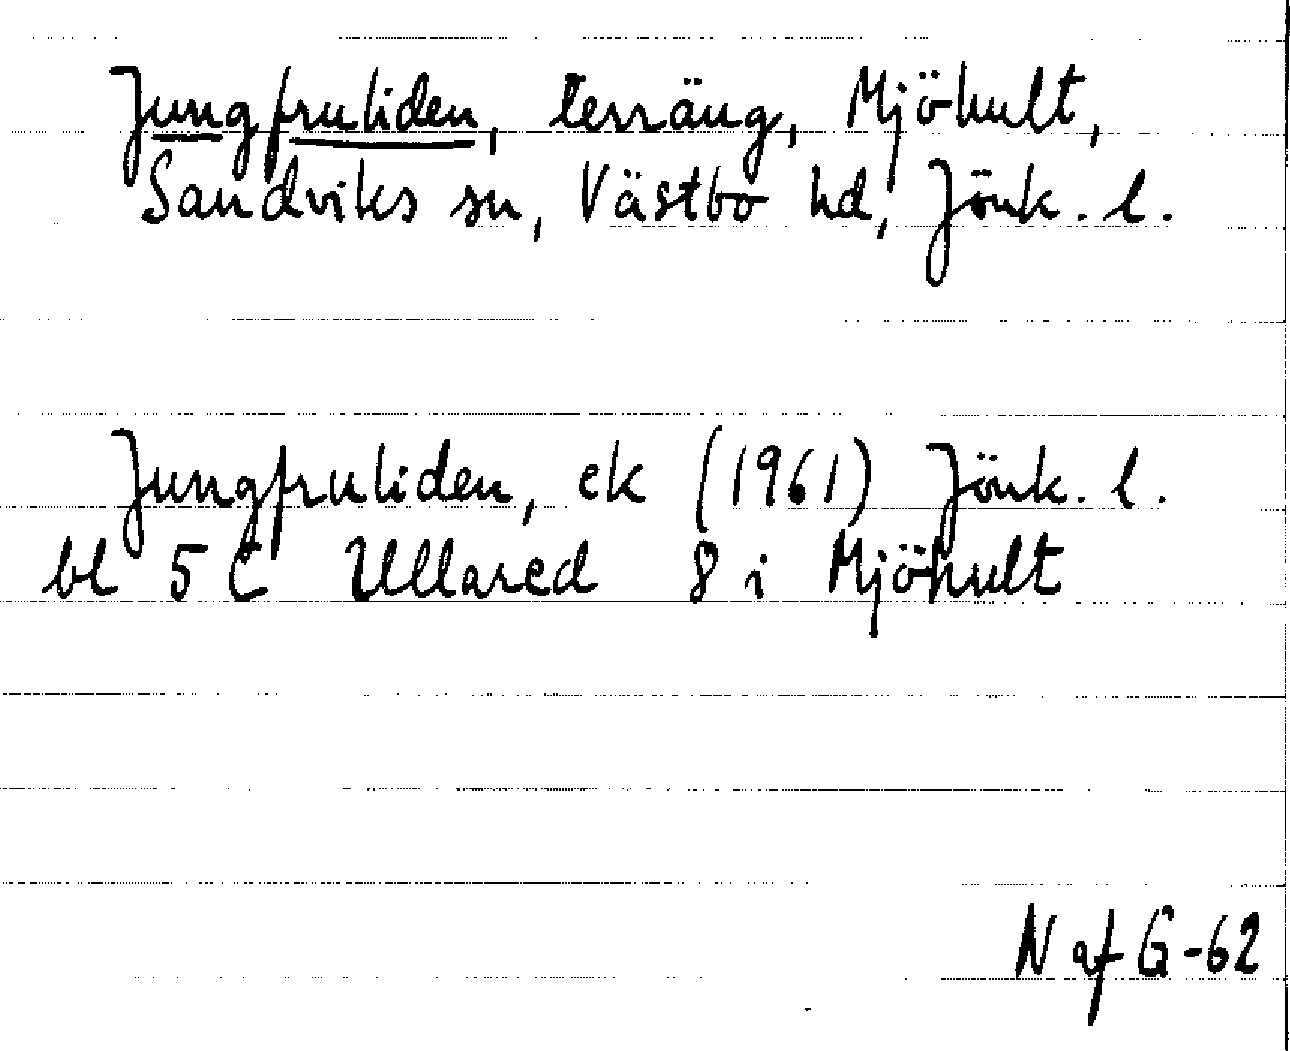 Jungfruliden, terräng, Mjöhult,
Sandviks sn, Västbo hd, Jönk. l.
Jungfruliden, ek (1961) Jönk. l.
bl 5 C Ullared 8 i Mjöhult
N af G-62